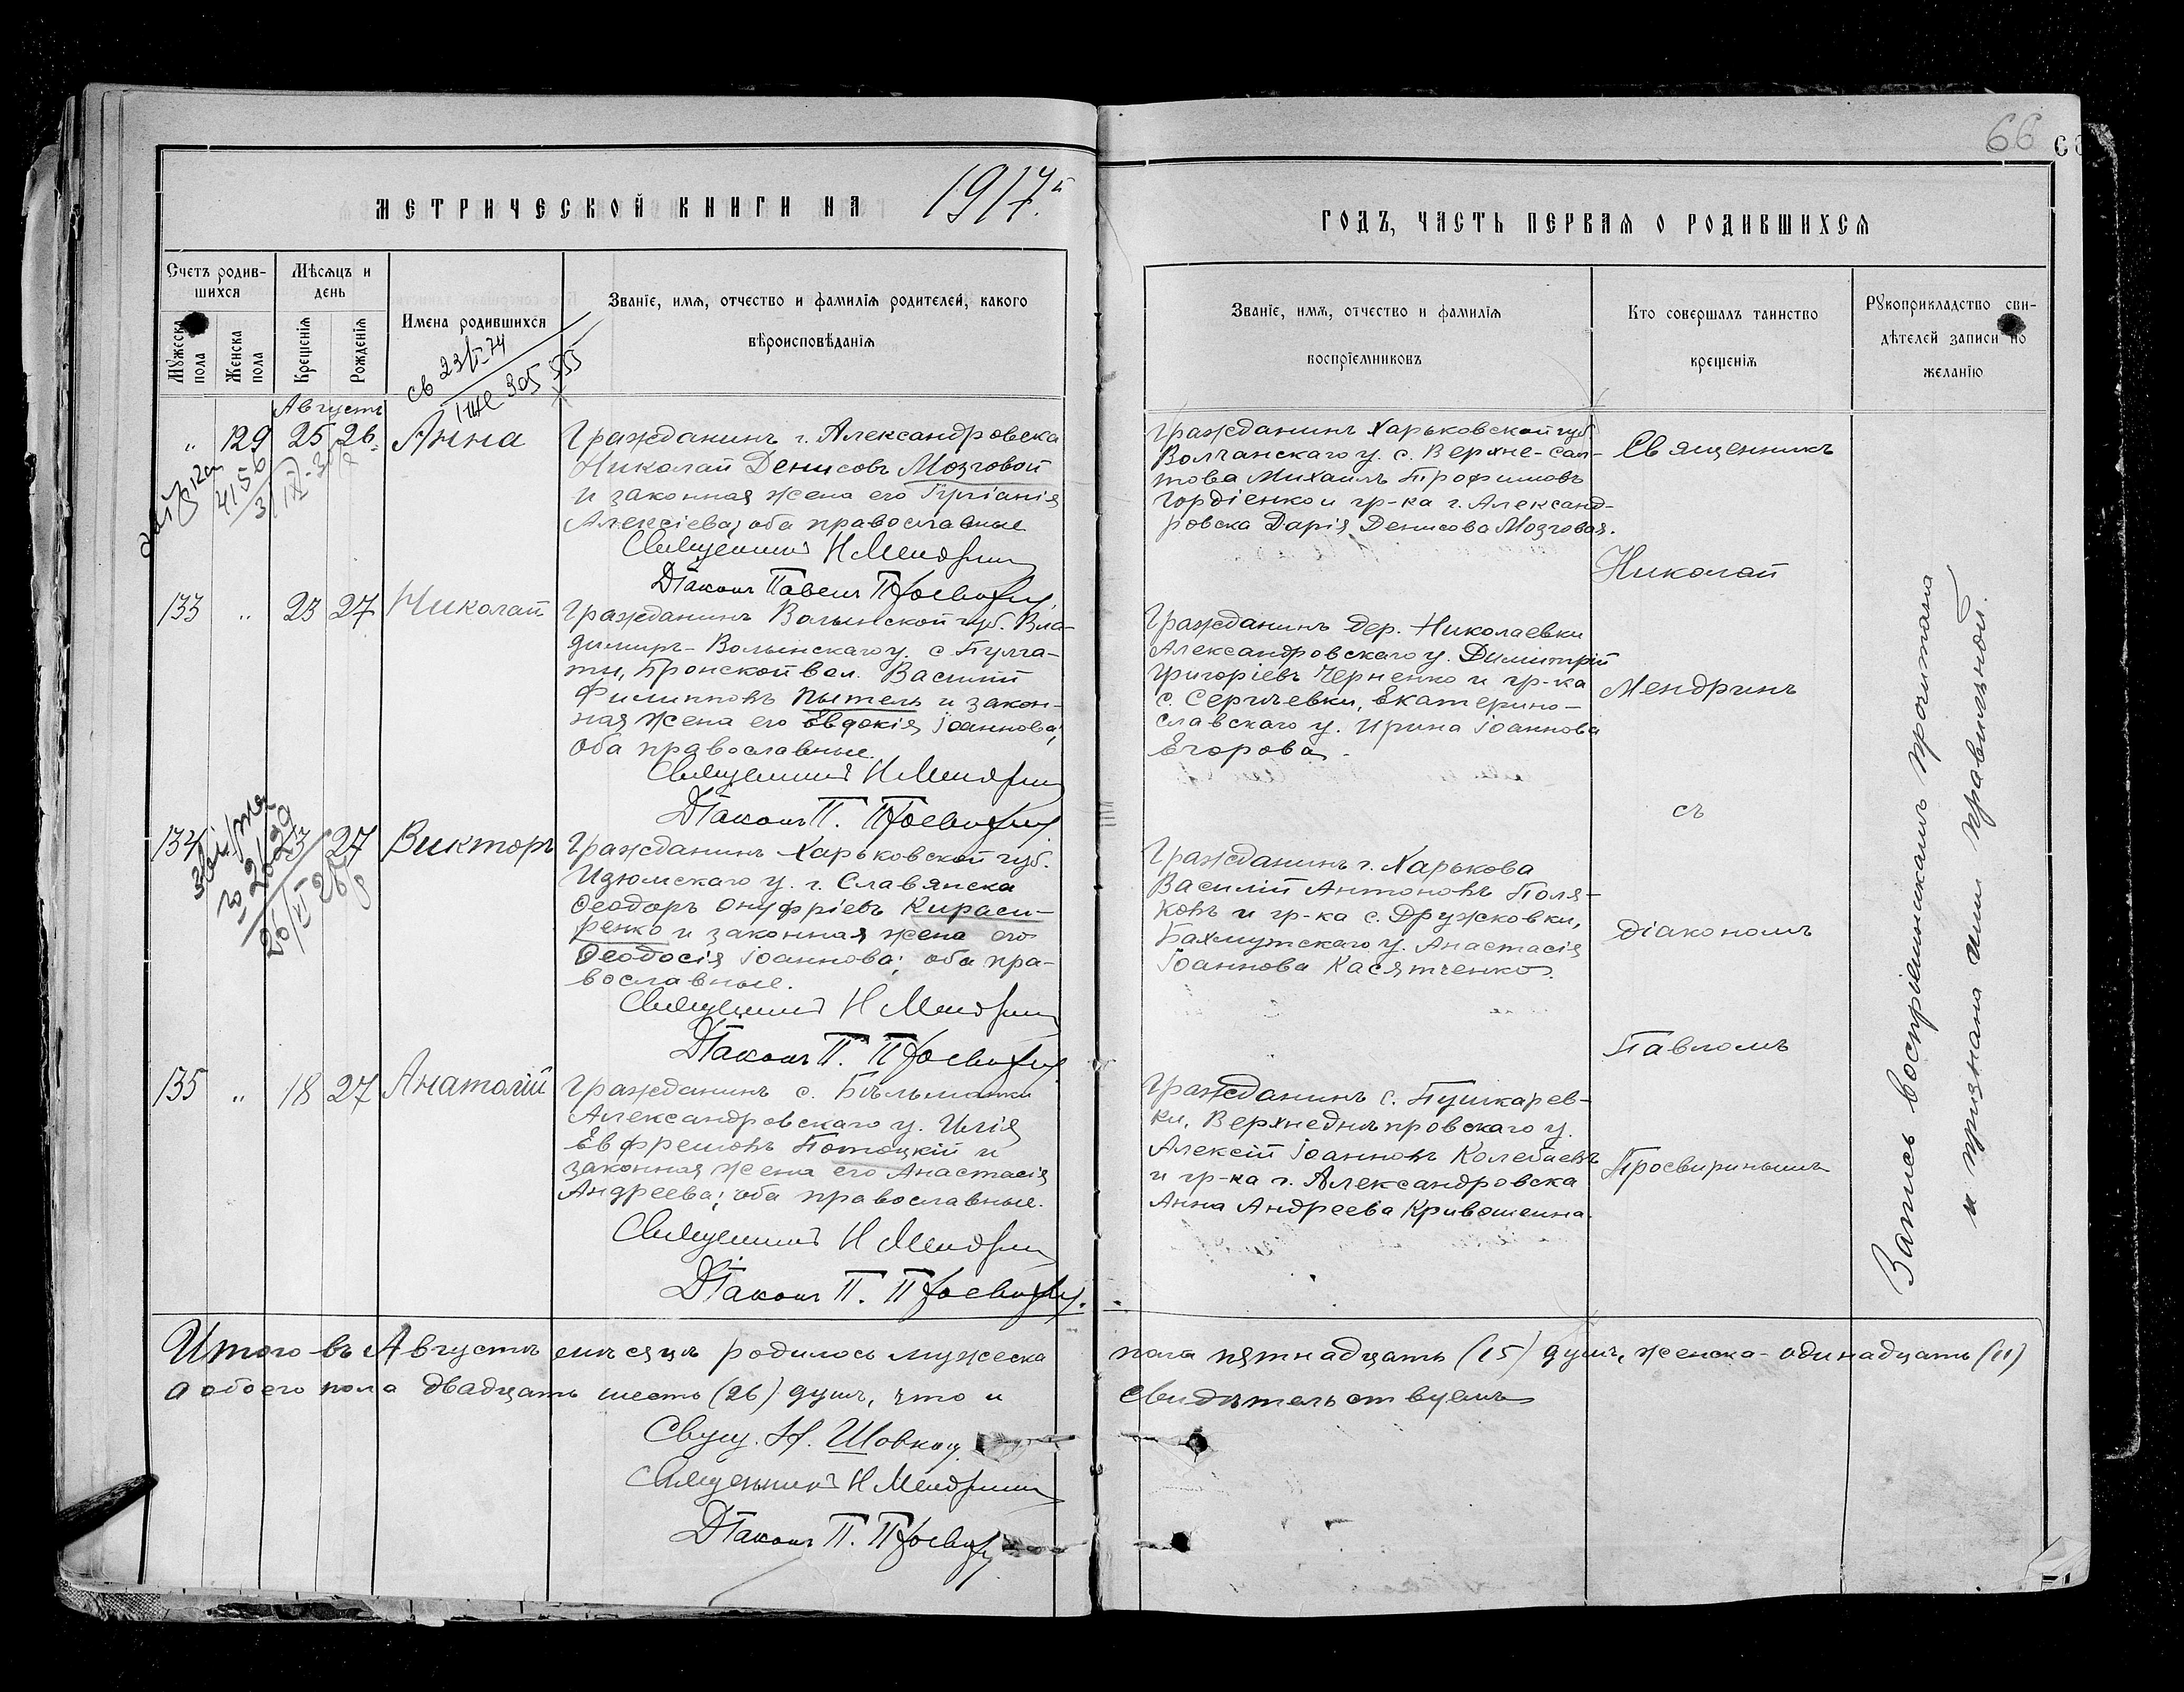 66
МЕТРИЧЕСКОЙ КНИГИ НА 1917.й
ГОДЪ, ЧАСТЬ ПЕРВАЯ О РОДИВШИХСЯ
Счетъ родив-
шихся
Мужеска
пола
Женска
пола
Мѣсяцъ и
день
Крещенія
Рожденія
Имена родившихся
Званіе, имя, отчество и фамилія родителей, какого
вѣроисповѣданія
Званіе, имя, отчество и фамилія
воспріемниковъ
Кто совершалъ таинство
крещенія
Рукоприкладство сви-
дѣтелей записи по
желанію
св 23/I-74
305 555
Августъ
„ 129 25 26 Анна
Гражданинъ г. Александровска
Николай Денисовъ Мозговой
и законная жена его
Алексіева; оба православные
Священникъ Н Мендринъ
Діаконъ Павелъ Просвиринъ
Гражданинъ Харьковской губ.
Волчанскаго у. с. Верхне-Сал-
това Михаилъ Трофимовъ
Гордіенко и гр-ка г. Александ-
ровска Дарія Денисова Мозговая.
133 „ 23 27 Николай
Гражданинъ Волынской губ. Вла-
димиръ-Волынскаго у. с.
вол. Василій
Филипповъ Пытель и закон-
ная жена его Евдокія Іоаннова;
оба православные.
Священникъ Н Мендринъ
Діаконъ П. Просвиринъ
Гражданинъ дер. Николаевки
Александровскаго у. Димитрій
Григоріевъ Черненко и гр-ка
с. Сергѣевки, Екатерино-
славскаго у. Ирина Іоаннова
Егорова.
134 27 Викторъ
Гражданинъ Харьковской губ.
Изюмскаго у. г. Славянска
Ѳеодоръ Онуфріевъ Кираси-
ренко и законная жена его
Ѳеодосія Іоаннова; оба пра-
вославные.
Священникъ Н Мендринъ
Діаконъ П. Просвиринъ
Гражданинъ г. Харькова
Василій Антоновъ Поля-
ковъ и гр-ка с. Дружковки,
Бахмутскаго у. Анастасія
Іоаннова Касятченко.
135 „ 18 27 Анатолій
Гражданинъ с. Бѣльманки
Александровскаго у. Илія
Евфремовъ Потоцкій и
законная жена его Анастасія
Андреева; оба православные.
Священникъ Н Мендринъ
Діаконъ П. Просвиринъ
Гражданинъ с. Пушкарев-
ки, Верхнеднѣпровскаго у.
Алексій Іоанновъ Колебаевъ
и гр-ка г. Александровска
Анна Андреева Кривошеина.
Священникъ
Николай
Мендринъ
съ
діакономъ
Павломъ
Просвиринымъ
Запись воспріемникамъ прочитана
и признана ими правильной.
Итого въ Августѣ мѣсяцѣ родилось мужеска пола пятнадцать (15) душъ, женска - одинадцать (11)
а обоего пола двадцать шесть (26) душъ, что и свидѣтельствуемъ
Свящ. Н. Шовкоп
Священникъ Н Мендринъ
Діаконъ П. Просвиринъ